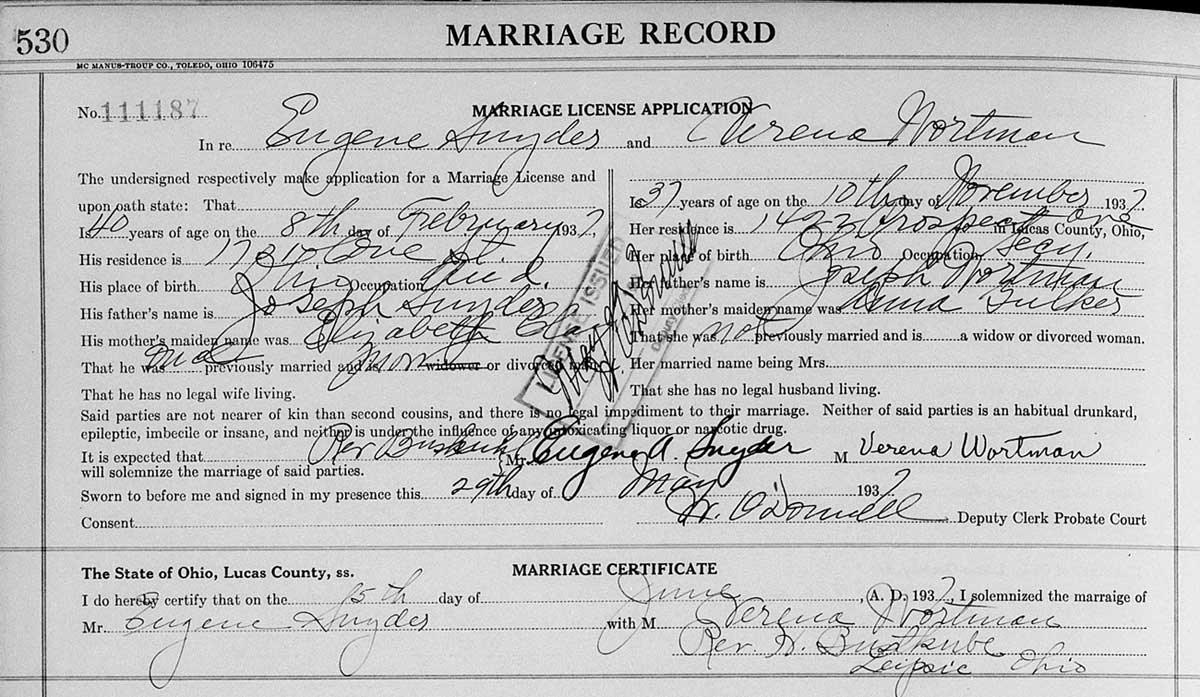 530
MARRIAGE RECORD
MC MANUS-TROUP CO., TOLEDO, OHIO 106475
No. 111187
MARRIAGE LICENSE APPLICATION
In re Eugene Snyder and Verena Wortman
The undersigned respectively make application for a Marriage License and
upon oath state: That
Is 40 years of age on the 8th day of February 1937.
His residence is St.
His place of birth Ohio Occupation
His father's name is Joseph Snyder
His mother's maiden name was Elizabeth
That he was previously married and is widower or divorced
That he has no legal wife living.
Is 37 years of age on the 10th day of November 1937.
Her residence is 1422 Prospect Ave in Lucas County, Ohio,
Her place of birth Ohio Occupation Secy.
Her father's name is Joseph Wortman
Her mother's maiden name was Anna
That she was not previously married and is a widow or divorced woman.
Her married name being Mrs.
That she has no legal husband living.
LICENSE ISSUED
Said parties are not nearer of kin than second cousins, and there is no legal impediment to their marriage. Neither of said parties is an habitual drunkard,
epileptic, imbecile or insane, and neither is under the influence of any intoxicating liquor or narcotic drug.
It is expected that Rev Mr. Eugene A. Snyder M Verena Wortman
will solemnize the marriage of said parties.
Sworn to before me and signed in my presence this 29th day of May 1937
Consent W. O'Donnell Deputy Clerk Probate Court
The State of Ohio, Lucas County, ss. MARRIAGE CERTIFICATE
I do hereby certify that on the 15th day of June, (A. D. 1937, I solemnized the marraige of
Mr. Eugene Snyder with M Verena Wortman
Rev. H.
Leipsic Ohio